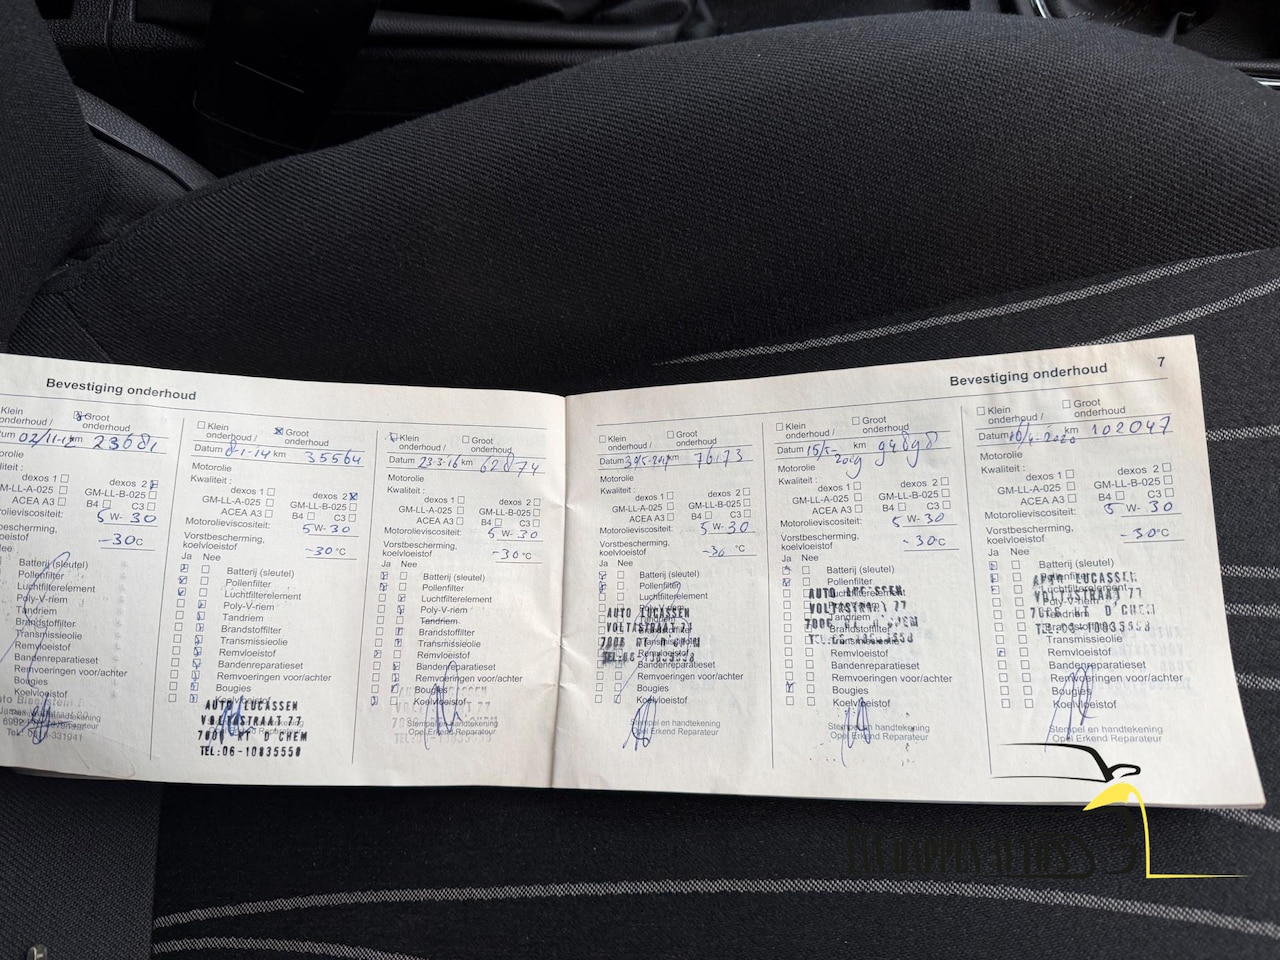 Bevestiging onderhoud
Klein
onderhoud /
Groot
onderhoud
02/11-12 km 23681
dexos 1
dexos 2
GM-LL-A-025
GM-LL-B-025
ACEA A3
B4
C3
5 W- 30
-30°C
Batterij (sleutel)
Pollenfilter
Luchtfilterelement
Poly-V-riem
Tandriem
Brandstoffilter
Transmissieolie
Remvloeistof
Bandenreparatieset
Remvoeringen voor/achter
Bougies
Koelvloeistof
Klein
onderhoud /
Groot
onderhoud
Datum 8-1-14 km 35564
Motorolie
Kwaliteit :
dexos 1
dexos 2
GM-LL-A-025
GM-LL-B-025
ACEA A3
B4
C3
Motorolieviscositeit: 5 W- 30
Vorstbescherming,
koelvloeistof
-30 °C
Ja Nee
Batterij (sleutel)
Pollenfilter
Luchtfilterelement
Poly-V-riem
Tandriem
Brandstoffilter
Transmissieolie
Remvloeistof
Bandenreparatieset
Remvoeringen voor/achter
Bougies
Koelvloeistof
AUTO LUCASSEN
VOLTASTRAAT 77
7006 RT D'CHEM
TEL:06-10835558
Klein
onderhoud /
Groot
onderhoud
Datum 23-3-16 km 62874
Motorolie
Kwaliteit :
dexos 1
dexos 2
GM-LL-A-025
GM-LL-B-025
ACEA A3
B4
C3
Motorolieviscositeit: 5 W- 30
Vorstbescherming,
koelvloeistof
-30 °C
Ja Nee
Batterij (sleutel)
Pollenfilter
Luchtfilterelement
Poly-V-riem
Tandriem
Brandstoffilter
Transmissieolie
Remvloeistof
Bandenreparatieset
Remvoeringen voor/achter
Bougies
Koelvloeistof
Stempel en handtekening
Opel Erkend Reparateur
Bevestiging onderhoud 7
Klein
onderhoud /
Groot
onderhoud
Datum km 76173
Motorolie
Kwaliteit :
dexos 1
dexos 2
GM-LL-A-025
GM-LL-B-025
ACEA A3
B4
C3
Motorolieviscositeit: 5 W- 30
Vorstbescherming,
koelvloeistof
-30 °C
Ja Nee
Batterij (sleutel)
Pollenfilter
Luchtfilterelement
Poly-V-riem
AUTO LUCASSEN
VOLTASTRAAT 77
7006 RT D'CHEM
TEL:06-10835558
Remvloeistof
Bandenreparatieset
Remvoeringen voor/achter
Bougies
Koelvloeistof
Stempel en handtekening
Opel Erkend Reparateur
Klein
onderhoud /
Groot
onderhoud
Datum 15/5-2019 km 94898
Motorolie
Kwaliteit :
dexos 1
dexos 2
GM-LL-A-025
GM-LL-B-025
ACEA A3
B4
C3
Motorolieviscositeit: 5 W- 30
Vorstbescherming,
koelvloeistof
-30°C
Ja Nee
Batterij (sleutel)
Pollenfilter
Luchtfilterelement
AUTO LUCASSEN
VOLTASTRAAT 77
7006 RT D'CHEM
TEL:06-10835558
Remvloeistof
Bandenreparatieset
Remvoeringen voor/achter
Bougies
Koelvloeistof
Klein
onderhoud /
Groot
onderhoud
Datum 16/4-2020 km 102047
Motorolie
Kwaliteit :
dexos 1
dexos 2
GM-LL-A-025
GM-LL-B-025
ACEA A3
B4
C3
Motorolieviscositeit: 5 W- 30
Vorstbescherming,
koelvloeistof
-30°C
Ja Nee
Batterij (sleutel)
AUTO LUCASSEN
VOLTASTRAAT 77
7006 RT D'CHEM
TEL:06-10835558
Transmissieolie
Remvloeistof
Bandenreparatieset
Remvoeringen voor/achter
Bougies
Koelvloeistof
Stempel en handtekening
Opel Erkend Reparateur